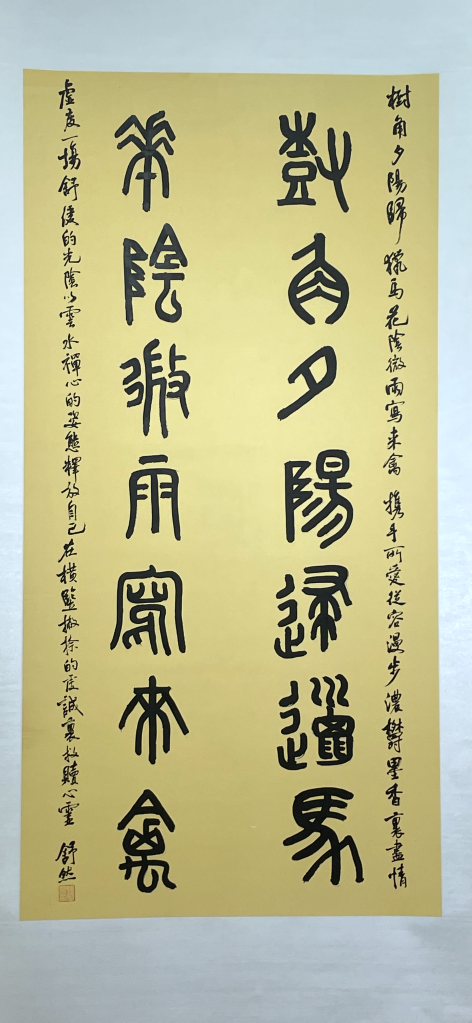 樹角夕陽歸獵馬花陰微雨寫來禽携手所愛從容漫步濃鬱墨香裏盡情
樹角夕陽歸獵馬
華陰微雨寫來禽
虛度一場舒緩的光陰以雲水禪心的姿態釋放自己在橫豎撇捺的虔誠裏救贖心靈 舒然